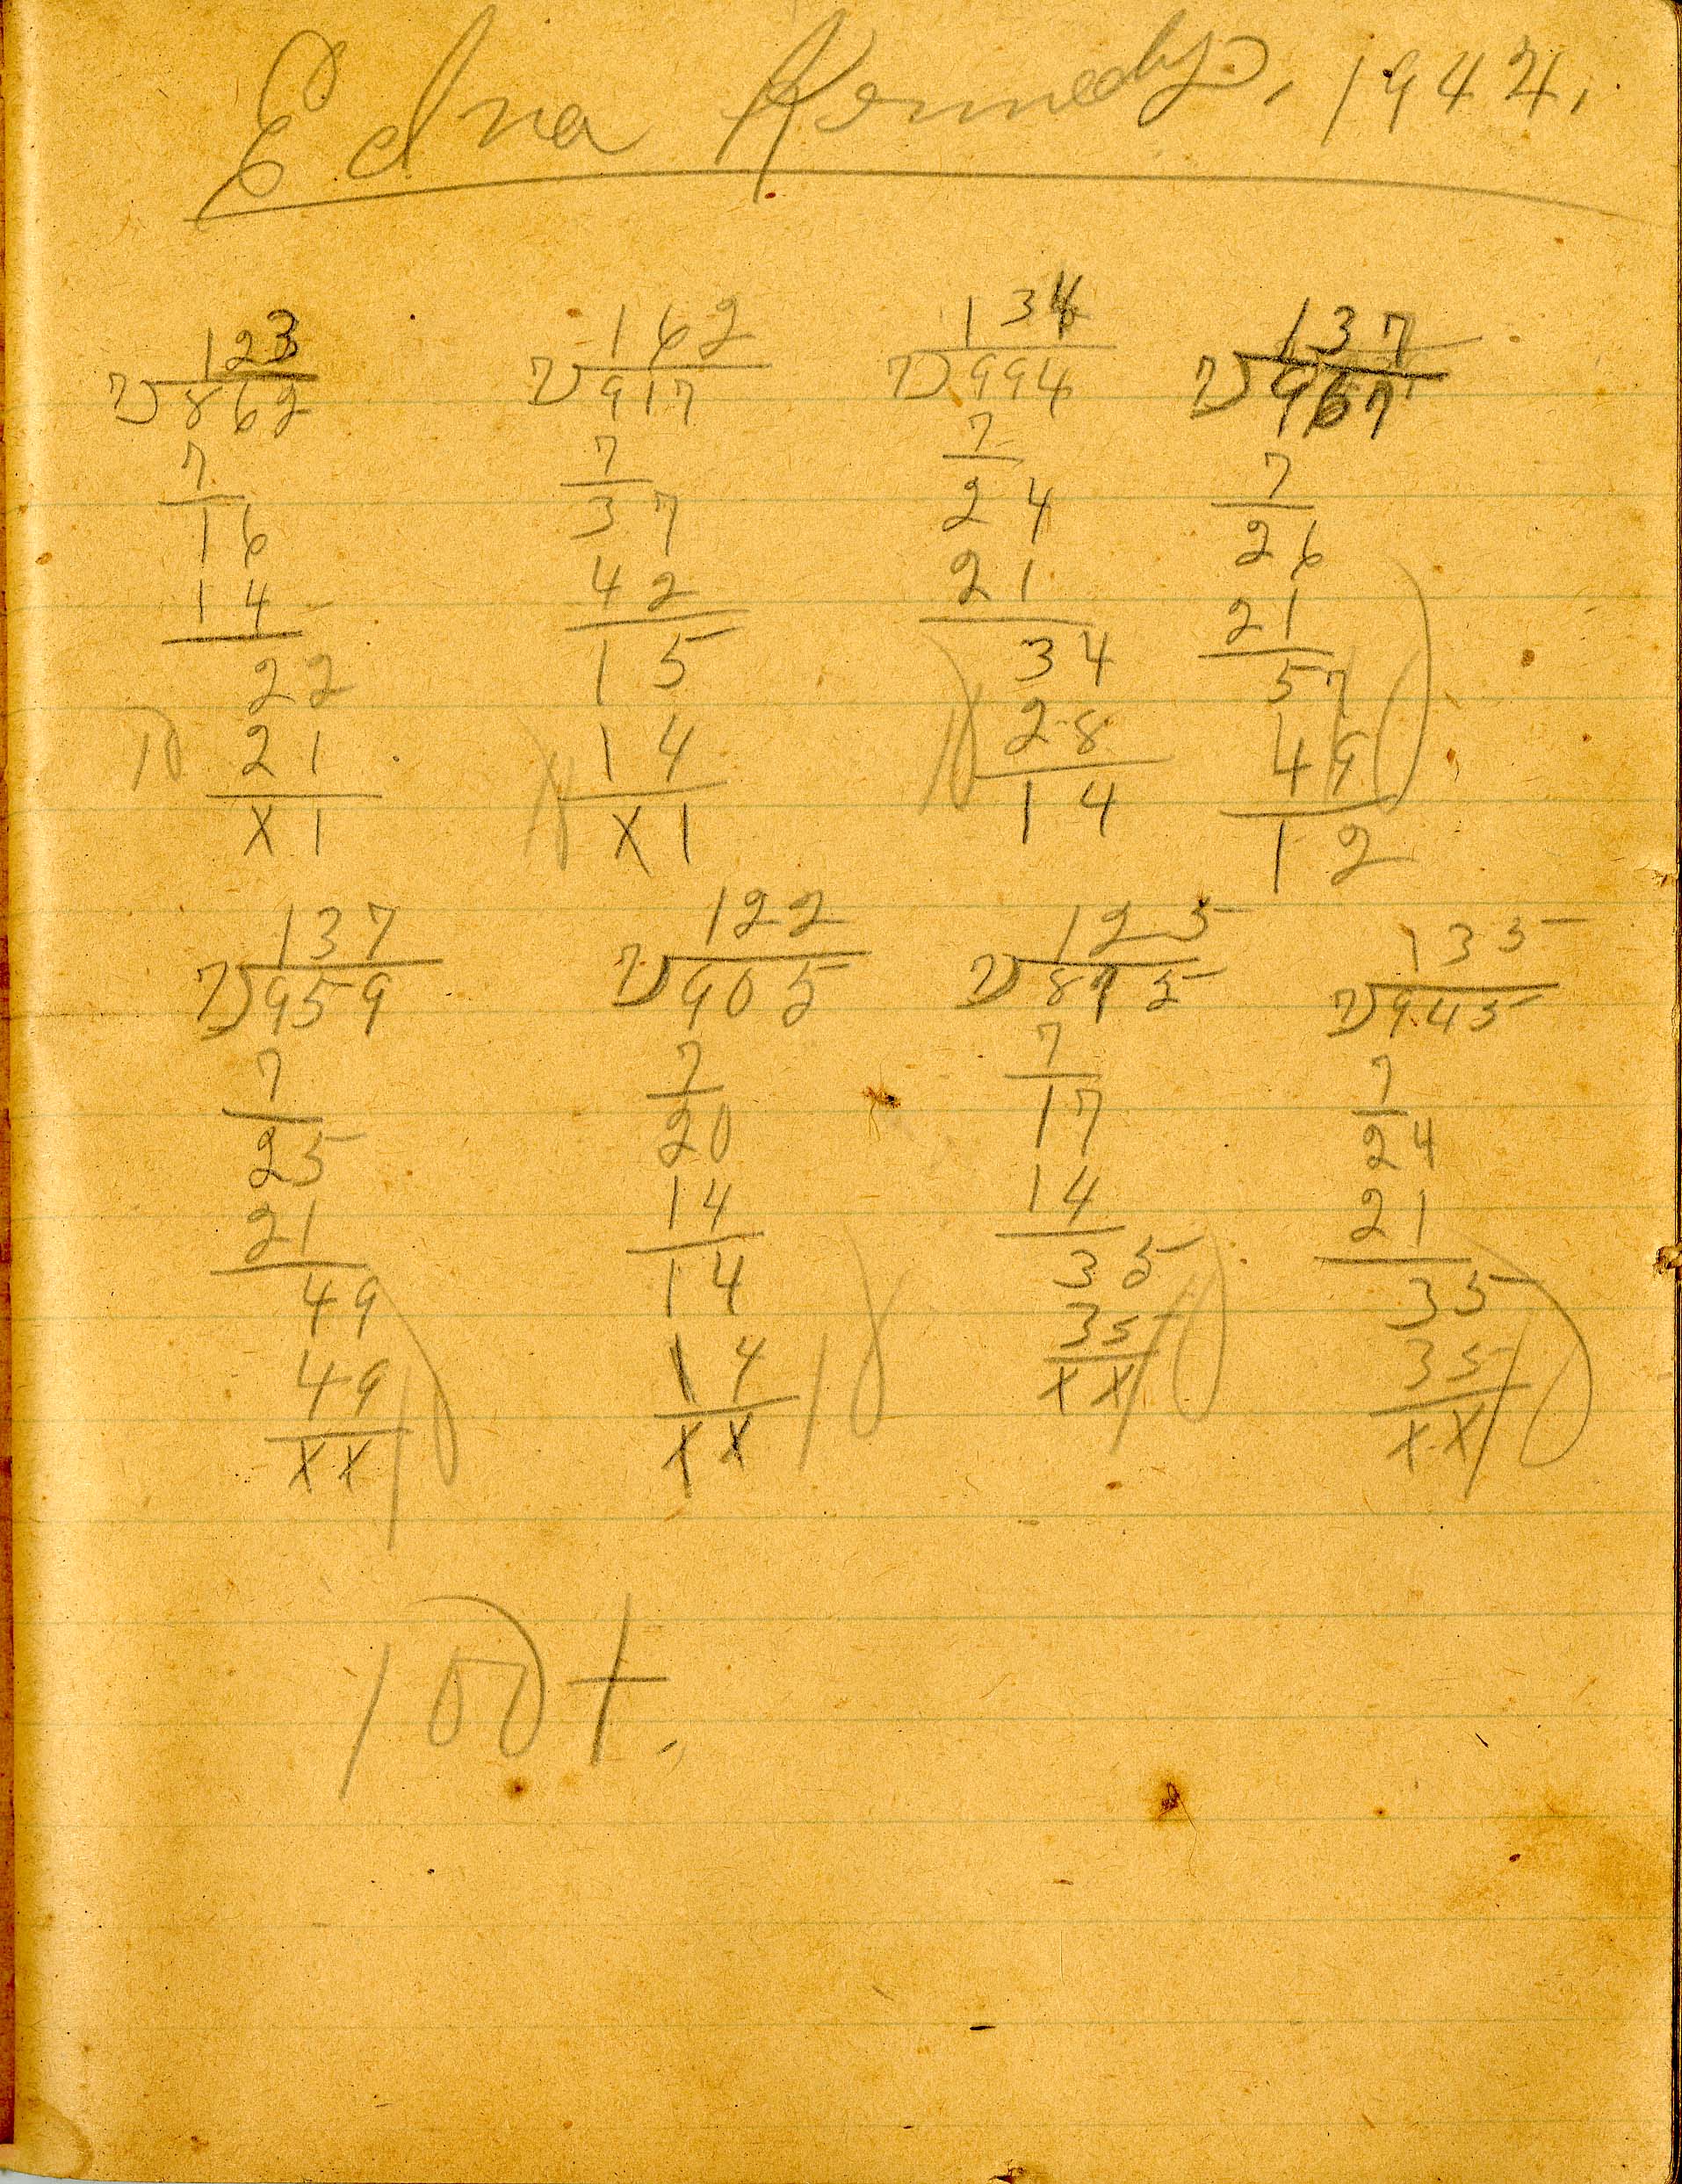 Edna Kennedy, 1942.
123 162 134 137
7)862 7)917 7)994 7)967
7 7 7 7
16 37 24 26
14 42 21 21
22 15 34 57
21 14 28 49
x1 x1 14 12
10 10 10 10
137 122 125 135
7)959 7)905 7)875 7)945
7 7 7 7
25 20 17 24
21 14 14 21
49 14 35 35
49 14 35 35
xx xx xx xx
10 10 10 10
100+.